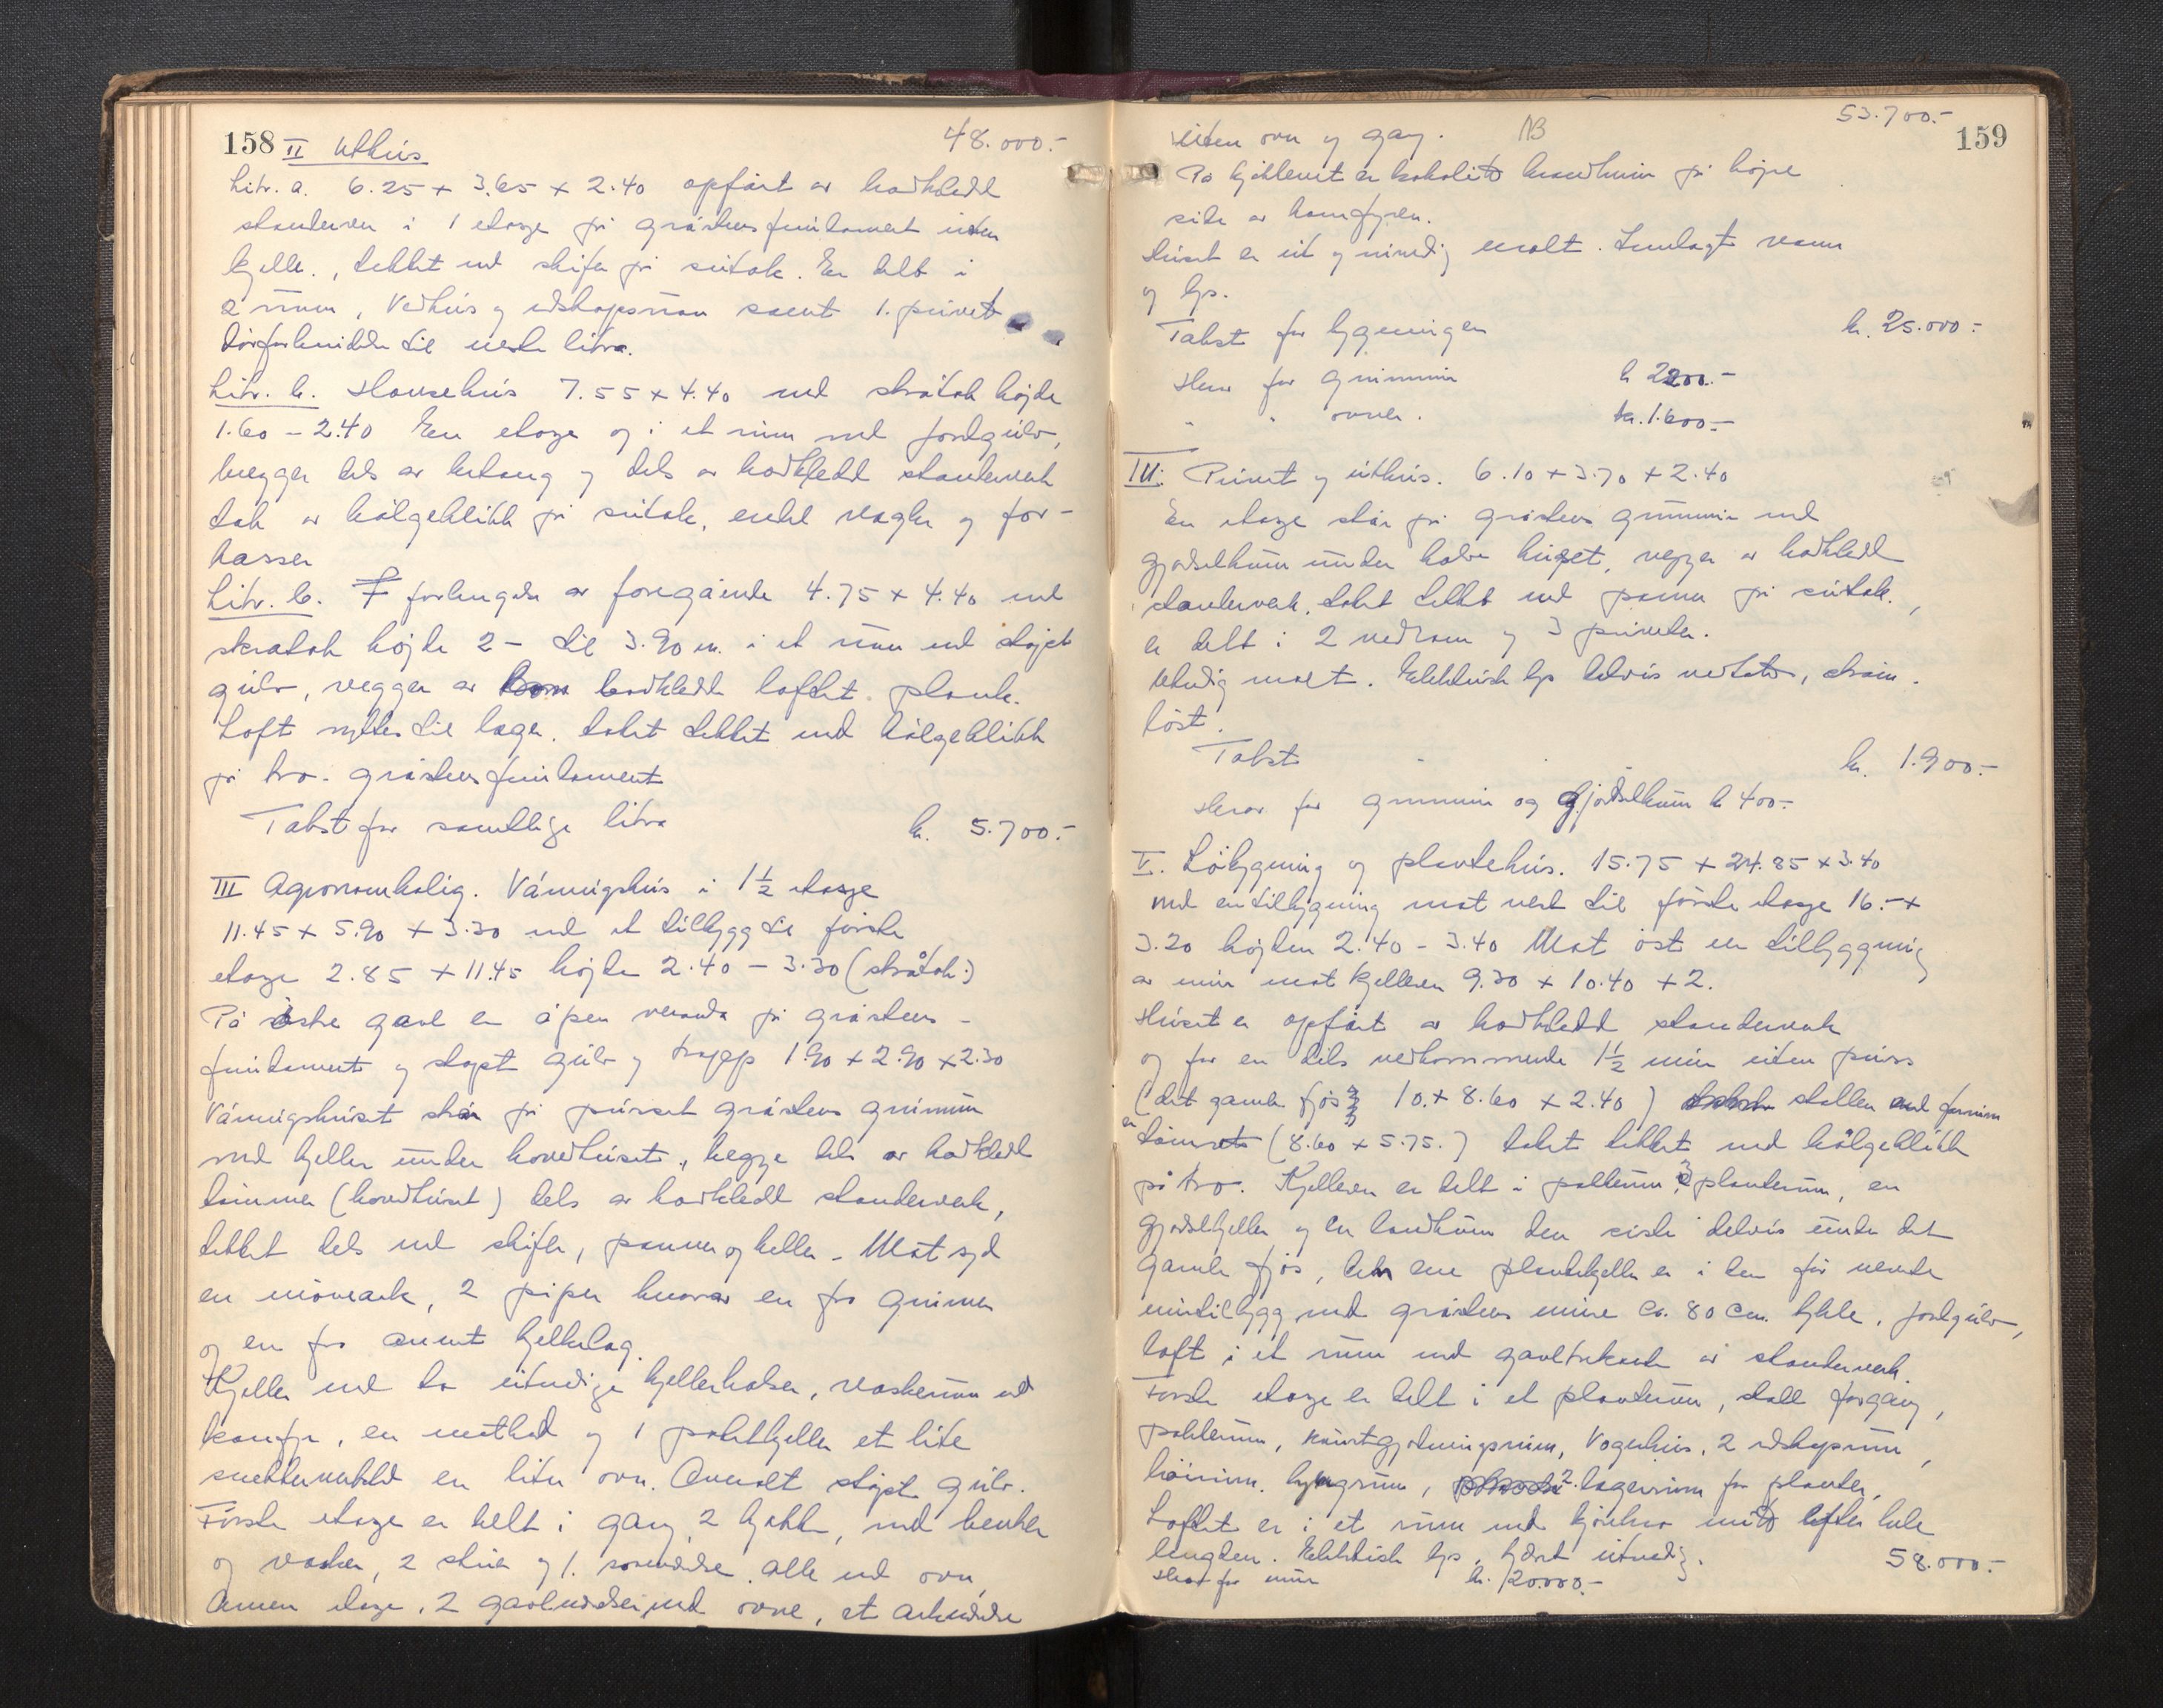 158 II Uthus 48.000.-
Litr. a. 6.25 + 3.65 + 2.40 opført av bordkledd
stenderverk i 1 etasje på gråstensfundament uten
kjeller, dekket med skifer på sutak. Er delt i
2 rum, Vedhus og redskapsrum samt 1. privet
Litr. b. Hønsehus 7.55 x 4.40 med skråtak højde
1.60 - 2.40 En etage og i et rum med jordgulv,
vegger dels av betong og dels av bordkledd stenderverk
tak av bølgeblikk på sutak, enkel vagler og for-
kasser
Litr. c. F forlengelse av foregående 4.75 x 4.40 med
skråtak højde 2 - til 3.90 m. i et rum med støpt
gulv, vegger av bordkledd loftet plank.
Loft nyttes til lager. taket dekket med bølgeblikk
på tro. gråstensfundament
Takst for samtlige litra kr. 5.700.-
III Agronombolig. Våningshus i 1½ etasje
11.45 + 5.90 + 3.30 med et tilbygg til første
etage 2.85 + 11.45 højde 2.40 - 3.30 (skråtak)
På østre gavl en åpen veranda på gråstens-
fundament og støpt gulv og trapp 1.90 + 2.90 x 2.30
Våningshuset står på pusset gråstens grunmur
med kjeller under hovedhuset, vegge dels av bordkledd
tømmer (hovedhuset) dels av bordkledd stenderverk,
dekket dels med skifer, panner og heller. Mot syd
en 2 piper hvorav en fra grunnen
og en fra annet bjelkelag.
Kjeller med to utvendige kjellerhalser, vaskerum med
komfyr, en matbod og 1 potetkjeller et lite
snekkerverksted en liten ovn. Overalt støpt gulv.
Første etage er delt i gang, 2 kjøkken, med benker
og vasker, 2 stuer og 1. soveværelse alle med ovn,
Annen etage. 2 gavlværelser med ovne, et arkværelse
53.700.- 159
uten ovn og gang. NB
På kjøkkenet er brandmur på højre
side av komfyren.
Huset er ut og invendig malt. Innlagt vann
og lys.
Takst for bygningen kr. 25.000.-
Herav for grunmur kr 2200.-
" " ovner. kr. 1.600.-
IV: Privet og uthus. 6.10 + 3.70 + 2.40
En etage står på gråstens grunmur med
gjødselkum under halve huset, vegger av bordkledd
stenderverk, taket dekket med panner på sutak,
er delt i 2 vedrom og 3 priveter.
Utvendig malt. Elektrisk lys delvis nedtatt, strøm-
løst.
Takst kr. 1.900.-
Herav for grunmur og gjødselkum kr 400.-
V. Løbygning og plantehus. 15.75 + 24.85 x 3.40
med en tilbygning mot vest til første etage 16.- +
3.20 højden 2.40 - 3.40 Mot øst en tilbyggning
av mur mot kjelleren 9.30 + 10.40 + 2.
Huset er opført av bordkledd stenderverk
og for en dels vedkommende 1½ mur uten puss
(det gamle fjøs 10.+ 8.60 x 2.40) stallen
er tømret (8.60 + 5.75.) taket dekket med bølgeblikk
på tro. Kjelleren er delt i potterum, 3 planterum, en
gjødselkjeller og en landkum den siste delvis under det
gamle fjøs, den ene plantekjeller er i den før nevnte
murtilbygg med gråstens mure ca. 80 cm. tykke, jordgulv,
loft i et rum med av stenderverk.
Første etage er delt i et planterum, stall forgang,
potterum, kunstgjødningsrum, Vognhus, 2 redskapsrum,
hørum. 2 lagerrum for planter,
Loftet er i et rum med kjørebro midt efter hele
lengden. Elektrisk lys, utvendig. 58.000.-
Herav for mur kr. 20.000.-